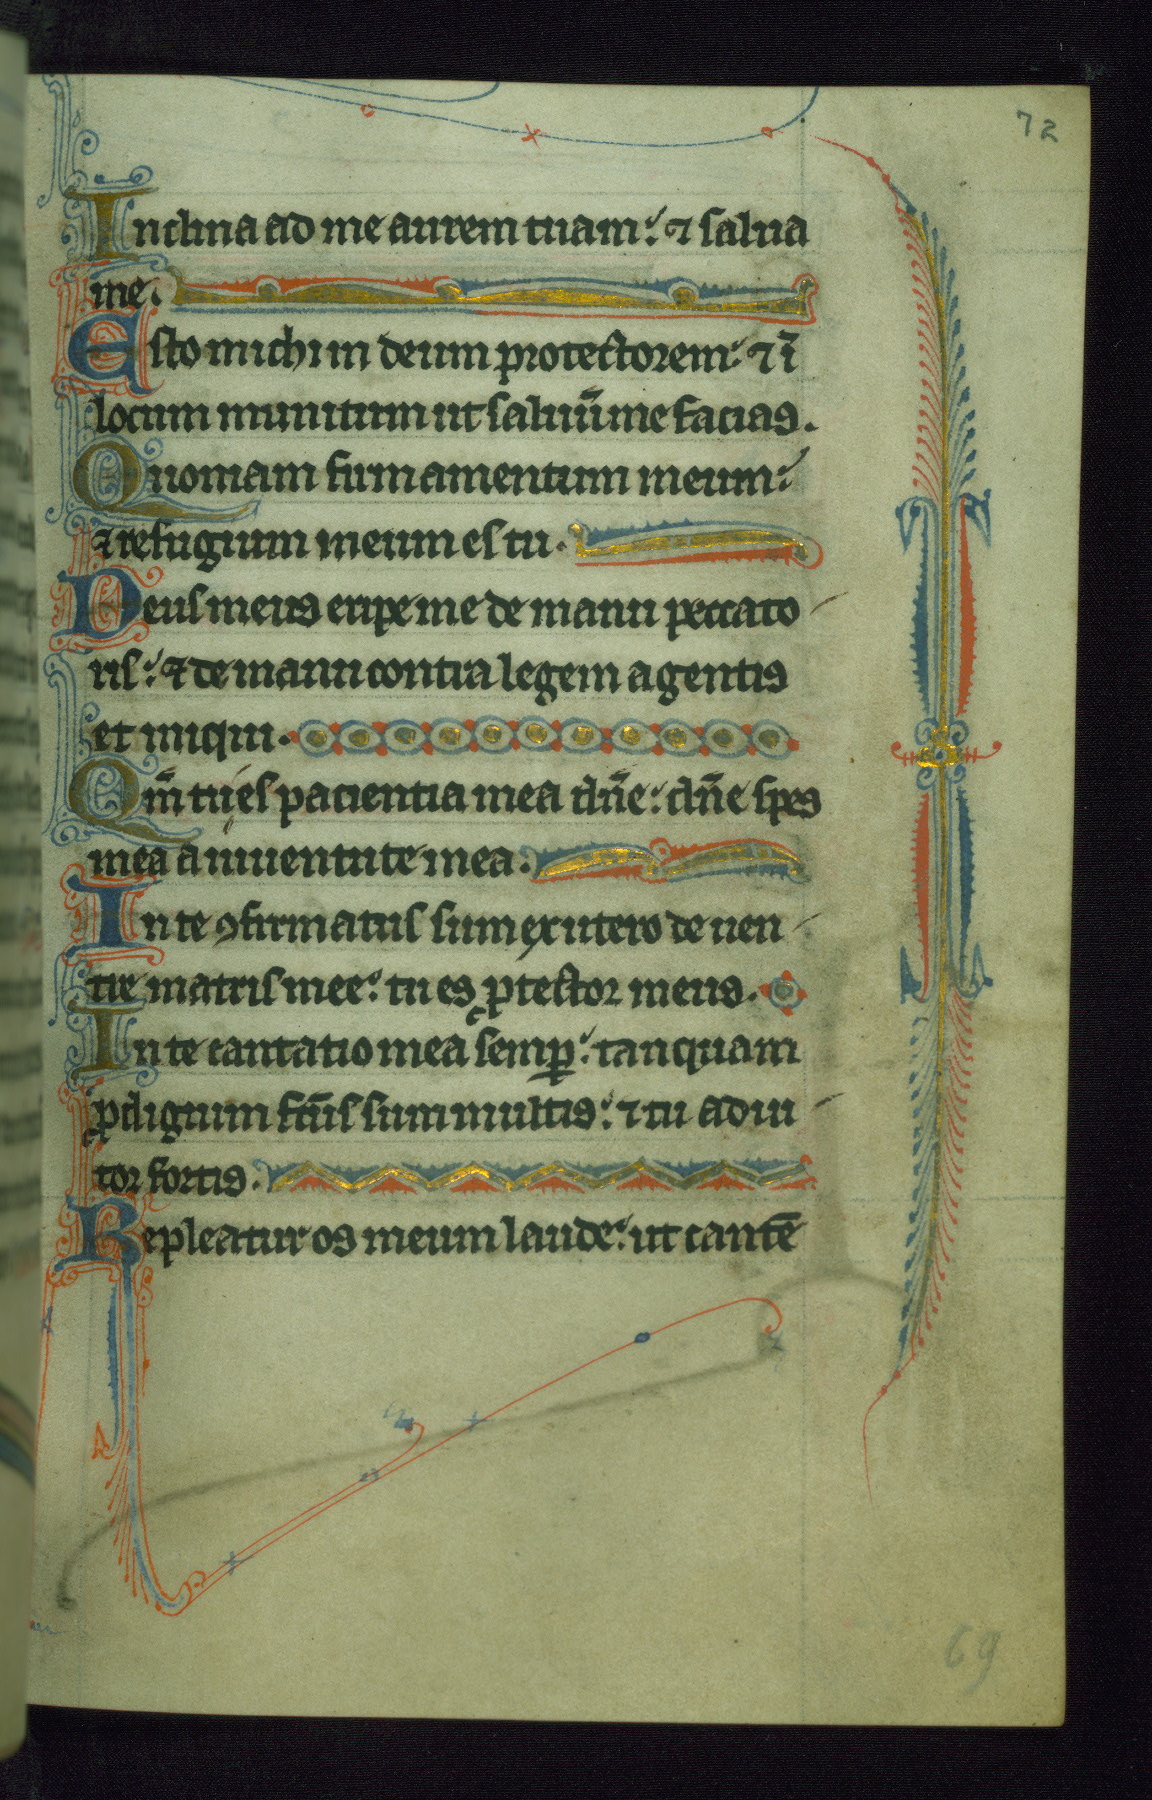 72
Inclina ad me aurem tuam: ⁊ salua
me.
Esto michi in deum protectorem: ⁊ ī
locum munitum ut saluū me facias.
Quoniam firmamentum meum:
⁊ refugium meum es tu.
Deus meus eripe me de manu peccato
ris: ⁊ de manu contra legem agentis
et iniqui.
Qm̄ tu es paciencia mea dn̄e: dn̄e spes
mea a iuuentute mea.
In te ꝯfirmatus sum ex utero de uen
tre matris mee: tu es ꝓtector meus.
In te cantatio mea semꝑ: tanquam
ꝓdigium fc̄us sum multis: ⁊ tu adiu
tor fortis.
Repleatur os meum laude: ut cantē
69